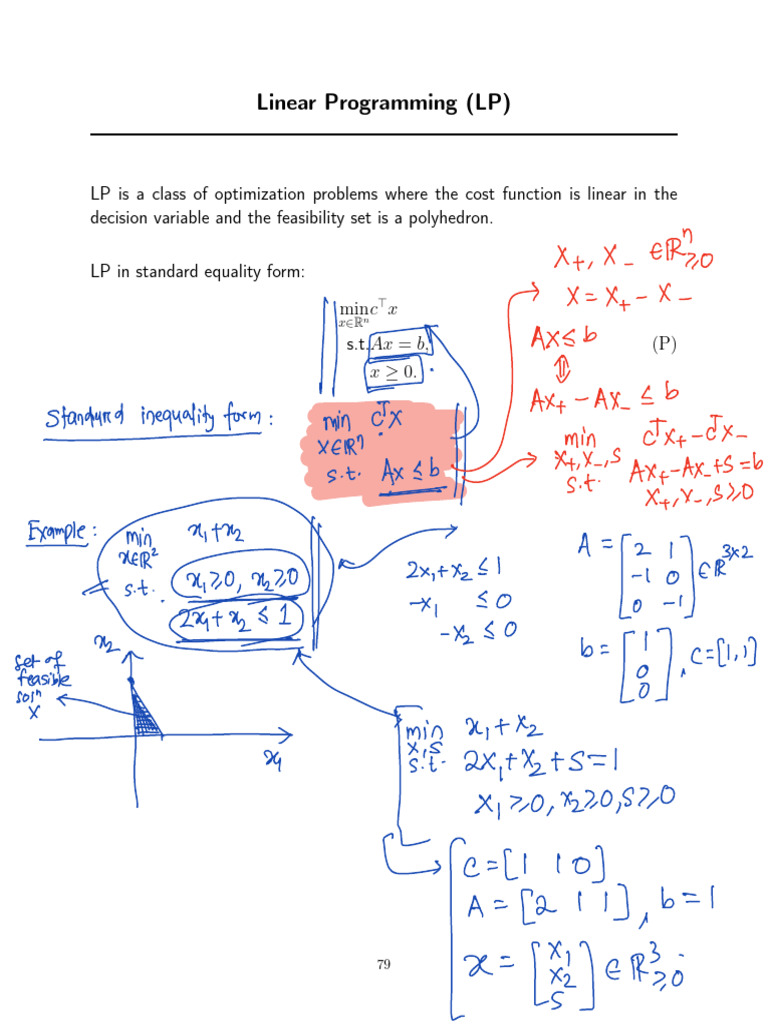 Linear Programming (LP)
LP is a class of optimization problems where the cost function is linear in the
decision variable and the feasibility set is a polyhedron.
LP in standard equality form:
min c⊤x
x∈ℝⁿ
s.t. Ax = b,
x ≥ 0.
(P)
x₊, x₋ ∈ ℝⁿ≥0
x = x₊ − x₋
Ax ≤ b
⇕
Ax₊ − Ax₋ ≤ b
min cᵀx₊ − cᵀx₋
x₊, x₋, s
s.t. Ax₊ − Ax₋ + s = b
x₊, x₋, s ≥ 0
Standard inequality form:
min cᵀx
x∈ℝⁿ
s.t. Ax ≤ b
Example:
min x₁+x₂
x∈ℝ²
s.t. x₁≥0, x₂≥0
2x₁+x₂ ≤ 1
2x₁+x₂ ≤ 1
−x₁ ≤ 0
−x₂ ≤ 0
A = [2 1
−1 0
0 −1] ∈ ℝ³ˣ²
b = [1
0
0], c=[1,1]
x₂
set of
feasible
solⁿ
X
x₁
min x₁+x₂
x,s
s.t. 2x₁+x₂+s=1
x₁≥0, x₂≥0, s≥0
c=[1 1 0]
A = [2 1 1], b=1
x = [x₁
x₂
s] ∈ ℝ³≥0.
79